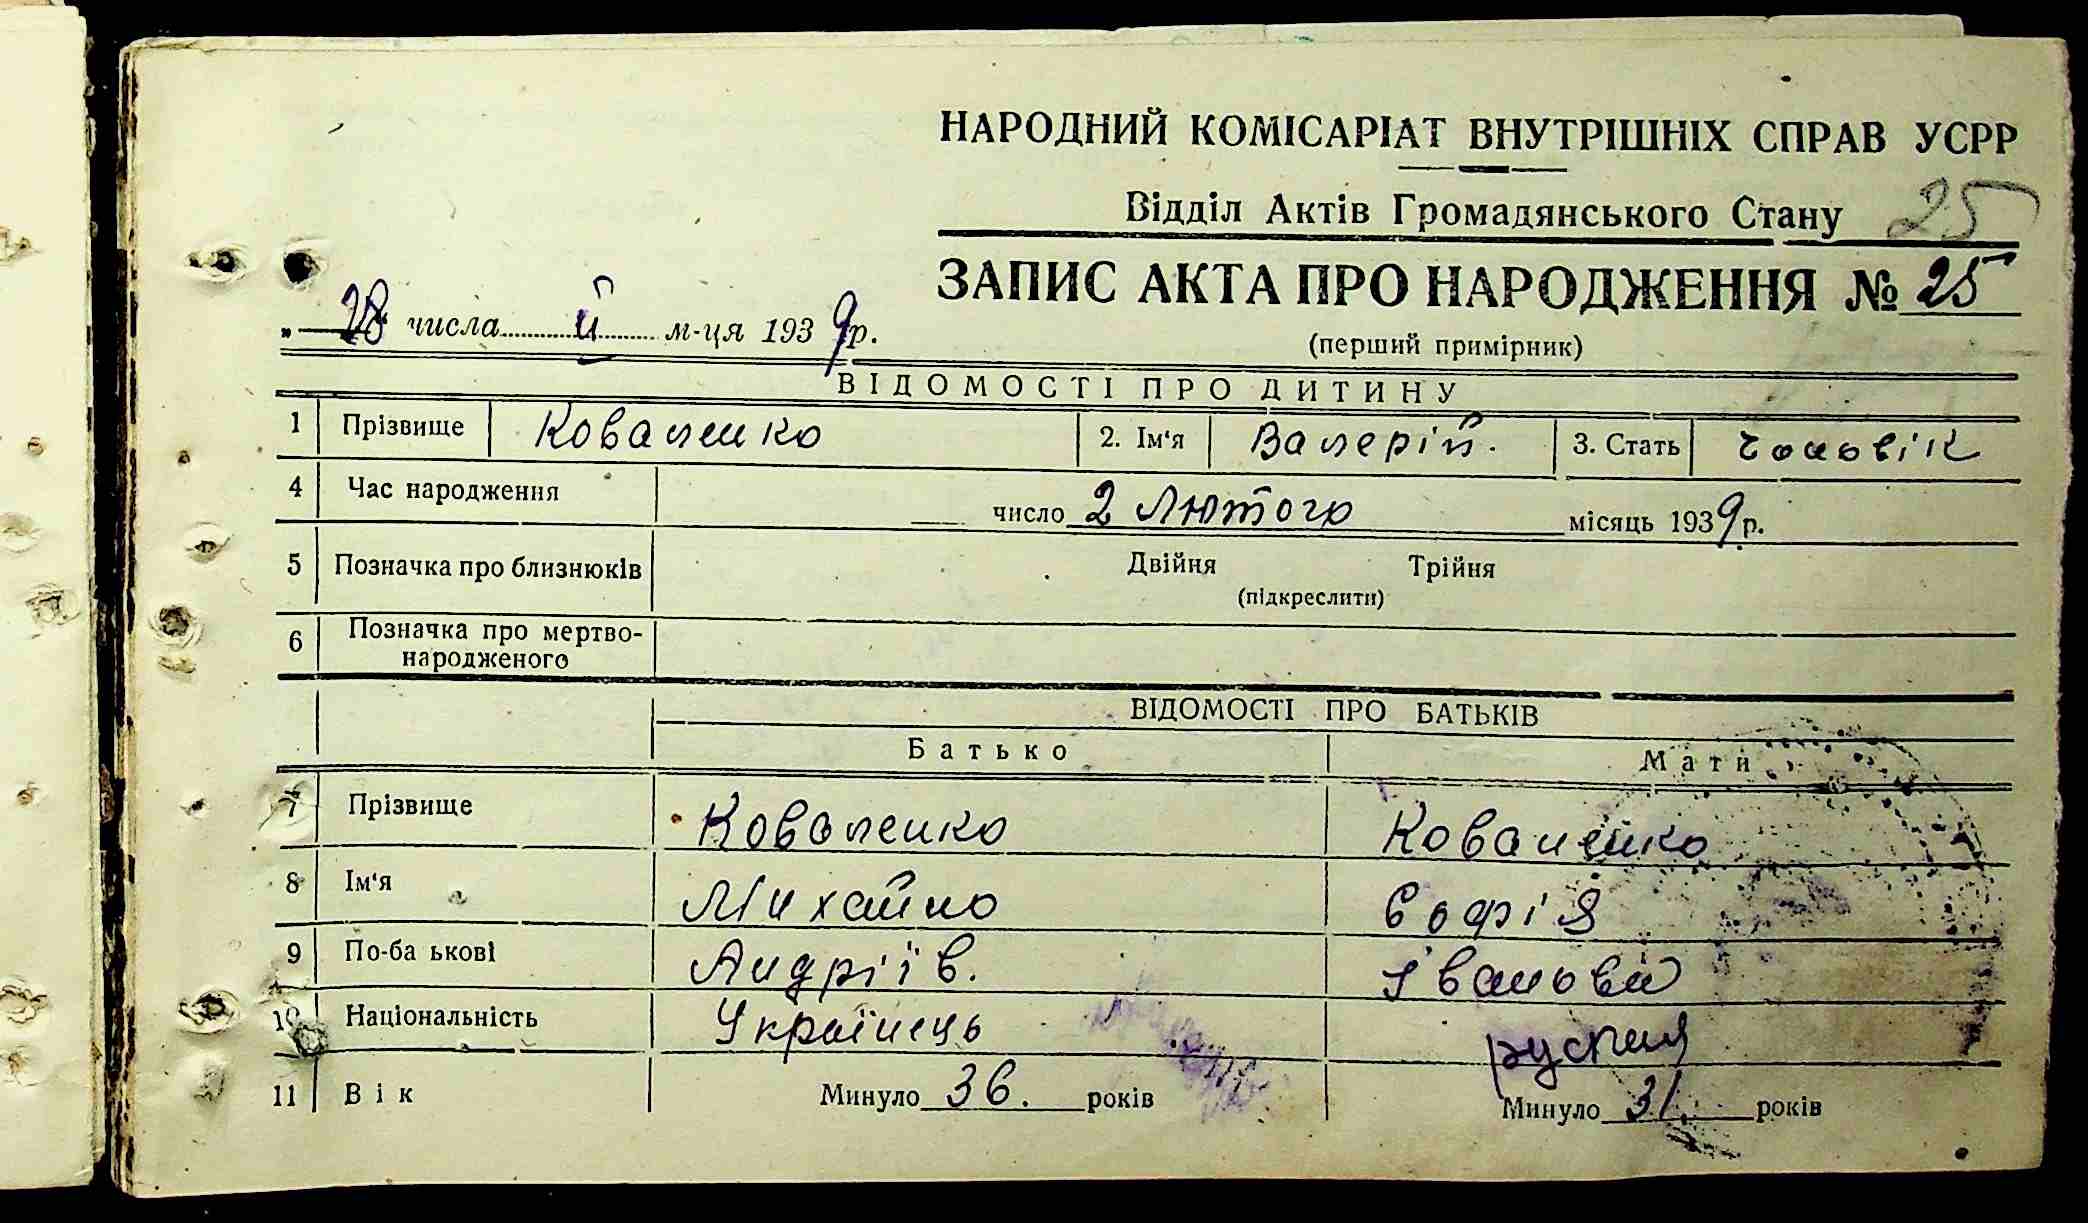 НАРОДНИЙ КОМІСАРІАТ ВНУТРІШНІХ СПРАВ УСРР
Відділ Актів Громадянського Стану 25
ЗАПИС АКТА ПРО НАРОДЖЕННЯ № 25
„ 28 числа й м-ця 1939 р.
(перший примірник)
ВІДОМОСТІ ПРО ДИТИНУ
1 Прізвище Коваленко 2. Ім'я Валерій. 3. Стать чоловік
4 Час народження число 2 Лютого місяць 1939 р.
5 Позначка про близнюків Двійня Трійня
(підкреслити)
6 Позначка про мертво-
народженого
ВІДОМОСТІ ПРО БАТЬКІВ
Батько Мати
7 Прізвище Коваленко Коваленко
8 Ім'я Михайло Софія
9 По-ба ькові Андріїв. Іванова
10 Національність Українець руская
11 Вік Минуло 36. років Минуло 31. років